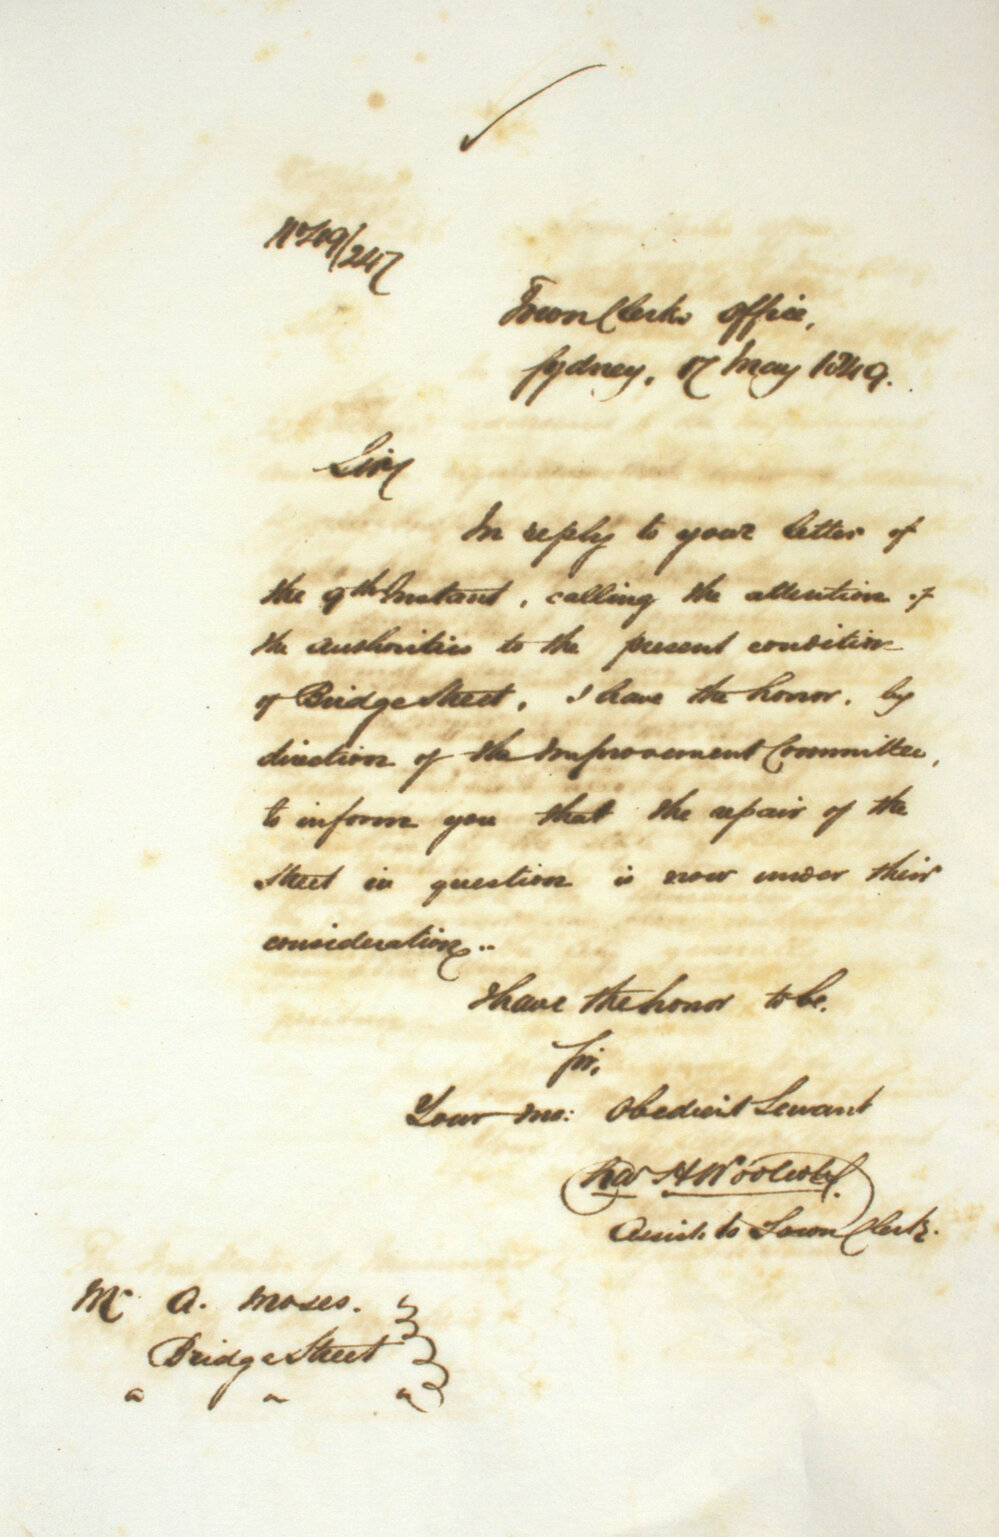 No 49/247
Town Clerks Office,
Sydney, 17 May 1849.
Sir,
In reply to your letter of
the 9th Instant, calling the attention of
the authorities to the present condition
of Bridge Street, I have the honor, by
direction of the Improvement Committee,
to inform you that the repair of the
Street in question is now under their
consideration..
I have the honor to be,
Sir,
Your mo: Obedient Servant
Chas H Woolcott.
Assist. to Town Clerk.
Mr A. Moses.
Bridge Street
" " "